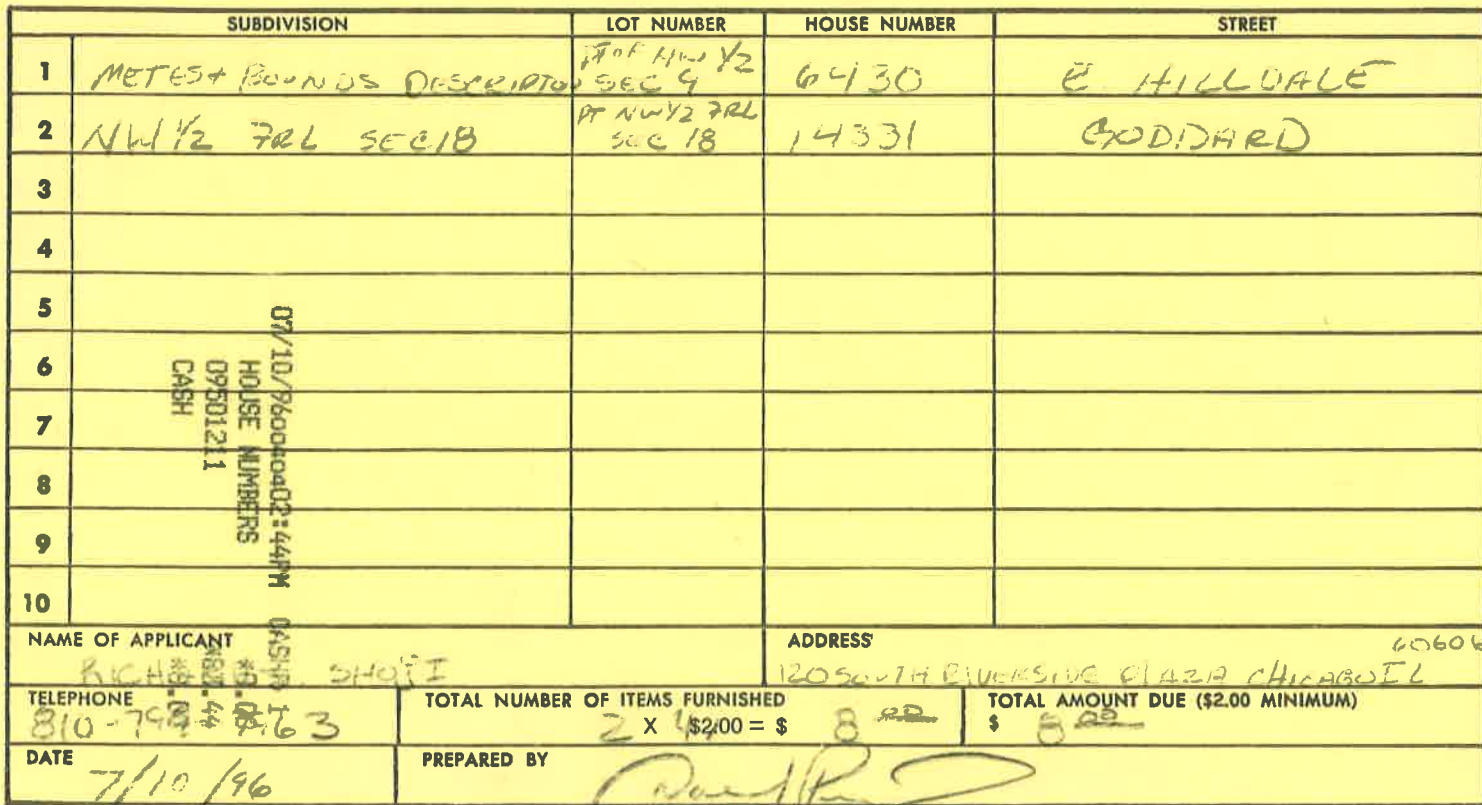 SUBDIVISION LOT NUMBER HOUSE NUMBER STREET
1 METES+ BOUNDS DESCRIPTON PT OF NW 1/2 SEC 9 6430 E HILLDALE
2 NW 1/2 FRL SEC 18 PT NW 1/2 FRL SEC 18 14331 GODDARD
3
4
5
6
7
8
9
10
07/10/96 02:44PM
HOUSE NUMBERS
09501211
CASH
NAME OF APPLICANT
SHOJI
ADDRESS
60606
120 SOUTH RIVERSIDE PLAZA CHICAGO IL
TELEPHONE
810-
TOTAL NUMBER OF ITEMS FURNISHED
2 X $2.00 = $ 8 00
TOTAL AMOUNT DUE ($2.00 MINIMUM)
$ 8 00
DATE
7/10/96
PREPARED BY